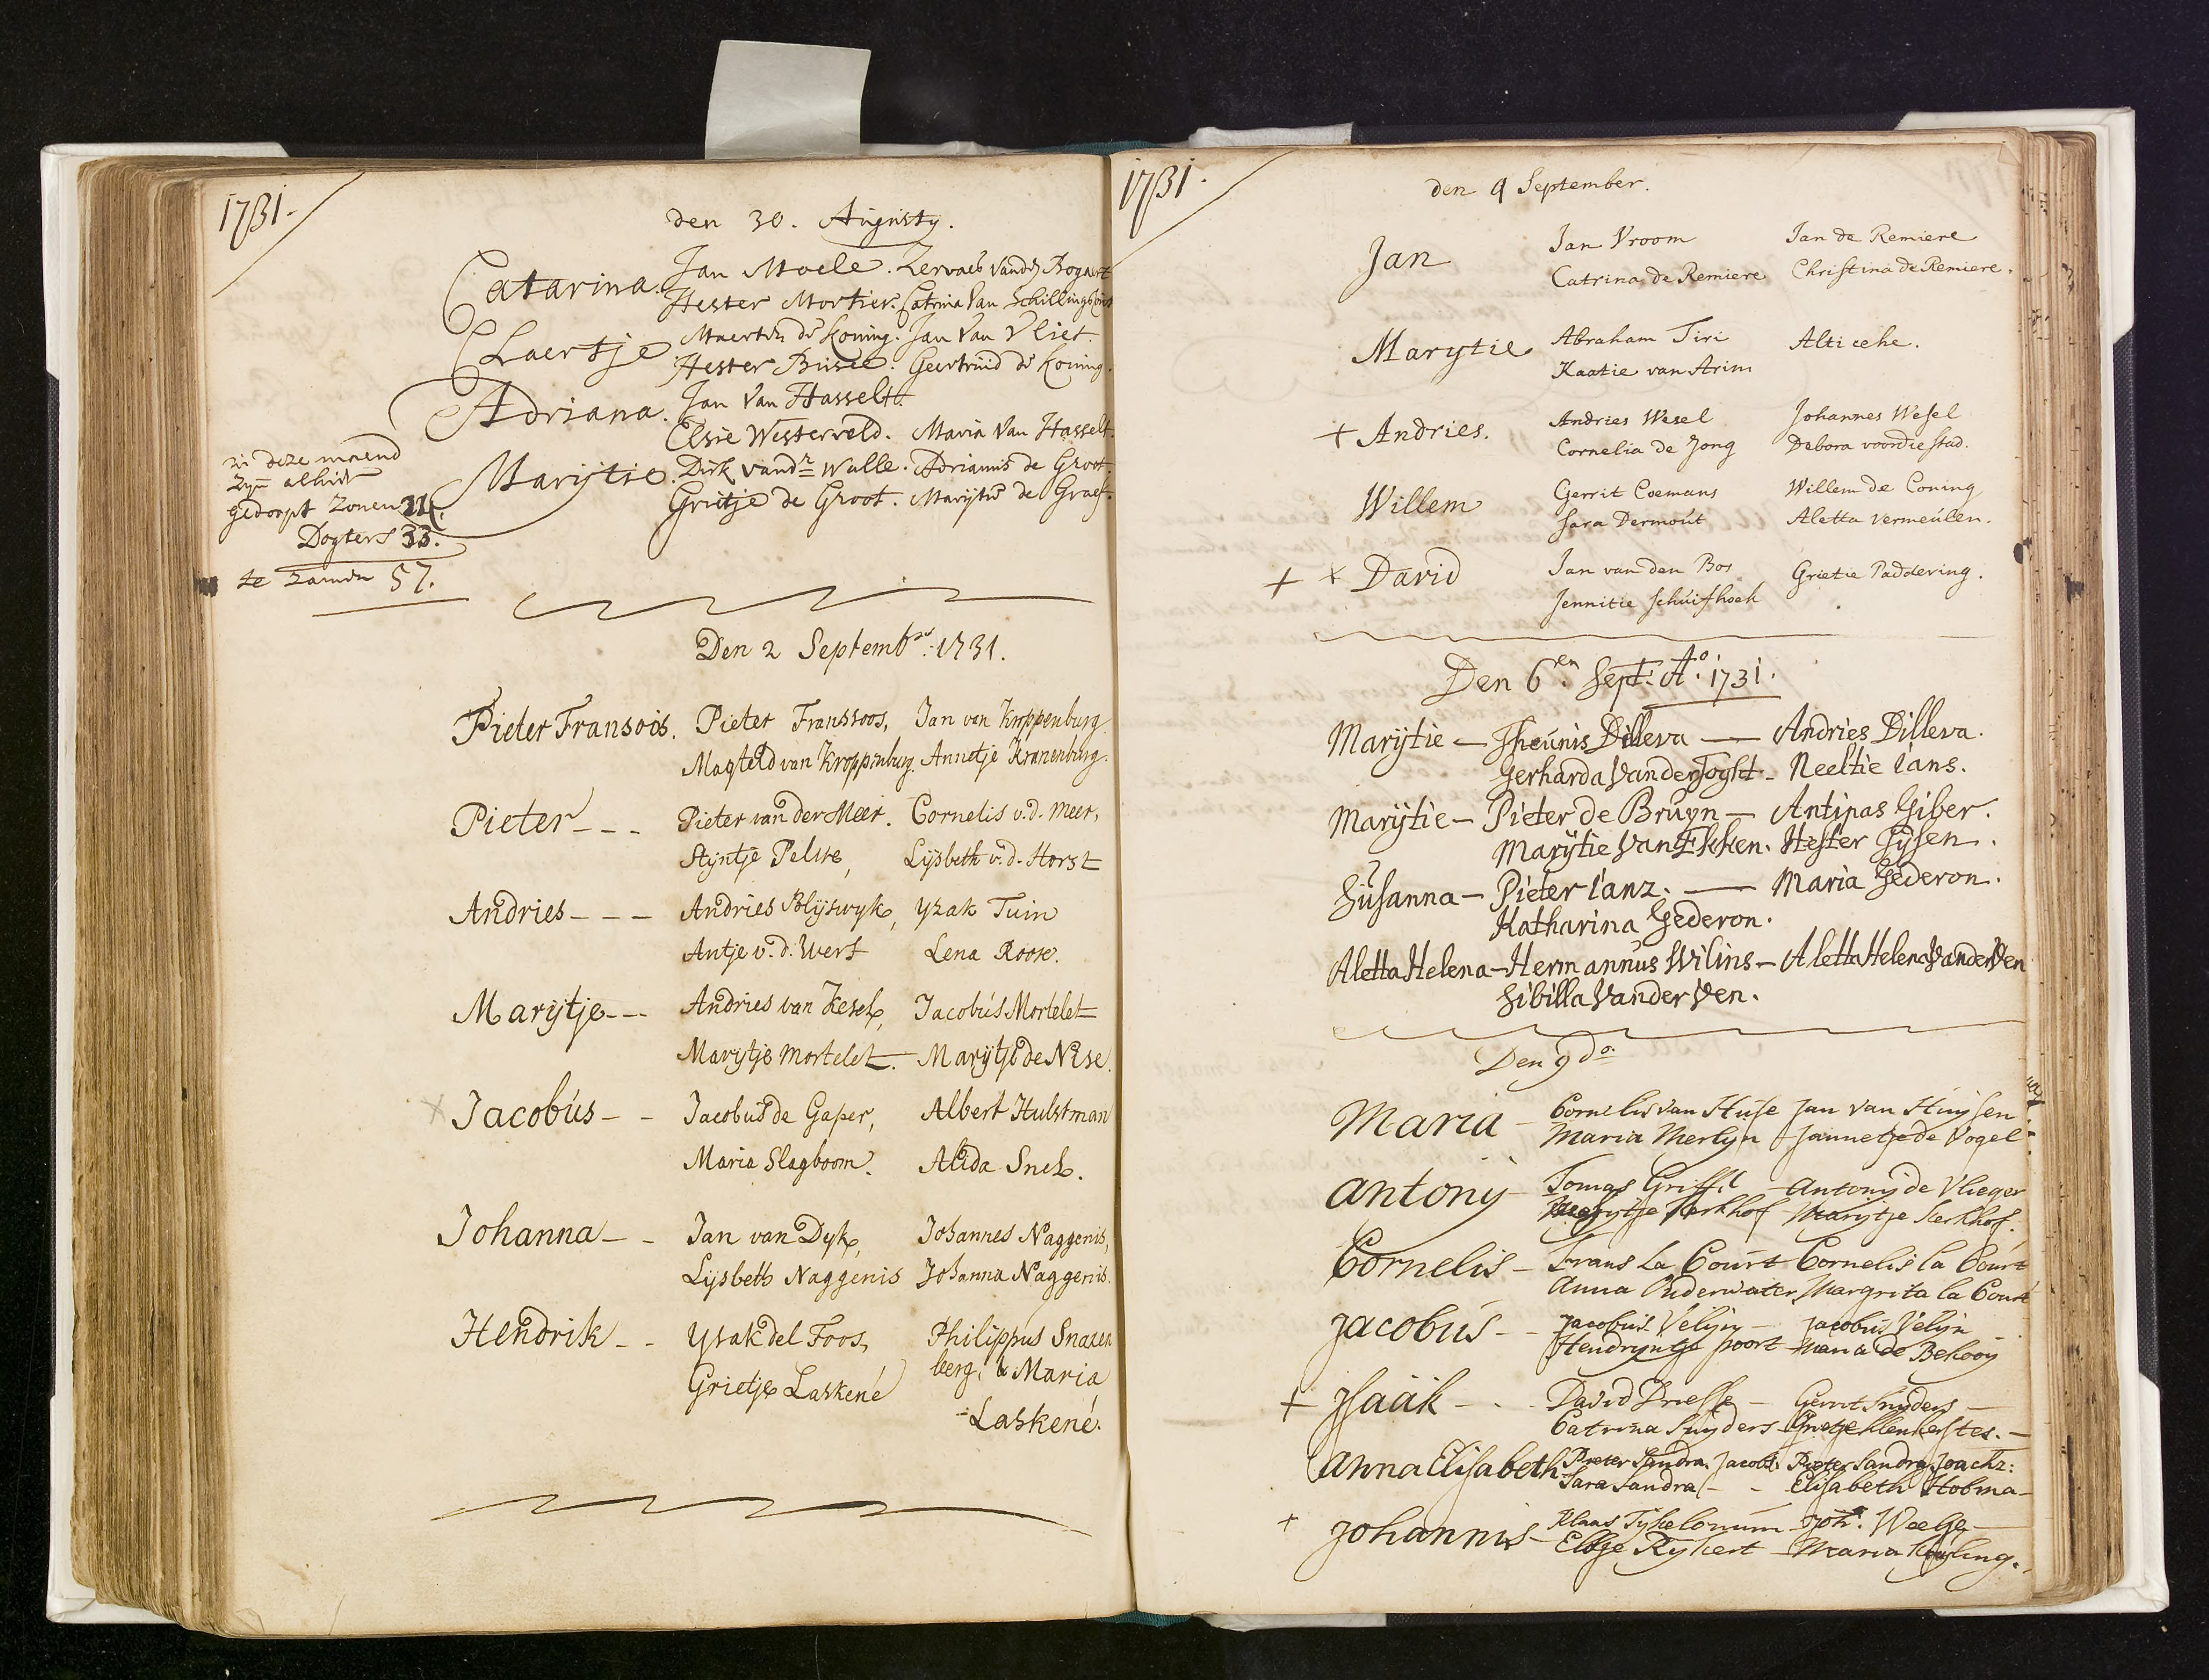 1731.
den 30. Augusty.
Catarina. Jan Moele. Zervaes vandn Bogaert
Hester Mortier. Catrina Van Schillings
Claertje Maerten de Koning. Jan Van Vliet.
Hester Busee. Geertruid de Koning.
Adriana. Jan Van Hasselt.
Elsie Westerveld. Maria Van Hasselt.
Marijtie. Dirk vandr Walle. Adrianus de Groot.
Grietje de Groot. Marijtie de Graef.
in deze maend
Zijn alhier
gedoopt Zonen 24.
Dogters 33.
te Zamen 57.
Den 2 Septembr. 1731.
Pieter Fransois. Pieter Franssoos, Jan van Kroppenburg
Magteld van Kroppenburg. Annetje Kranenburg.
Pieter - - - Pieter van der Meer. Cornelis v.d. Meer,
Stijntje Pelste, Lijsbeth v.d. Horst
Andries - - - Andries Blijswyk, Yzak Tuin
Antje v.d. Werf Lena Roose.
Marijtje - - - Andries van Kesel, Jacobús Mortelet
Marijtje Mortelet. Marijtje de Nise.
x Jacobús - - Jacobus de Gaper, Albert Hulstman
Maria Slagboom. Alida Snel.
Johanna - - Jan van Dyk, Johannes Naggenis,
Lijsbeth Naggenis Johanna Naggenis.
Hendrik - - Ysak del Foos, Philippus Snaren
Grietje Laskené berg, & Maria
Laskené.
1731.
den 9 September.
Jan Jan Vroom Jan de Remiere
Catrina de Remiere Christina de Remiere.
Marytie Abraham Tiri
Kaatie van Arim
+ Andries. Andries Wesel Johannes Wesel
Cornelia de Jong Debora voordiestad.
Willem Gerrit Coemans Willem de Coning
Sara Dermoút Aletta Vermeúlen.
+ x David Jan van den Bos Grietie Paddering.
Jennitie Schúifhoek
Den 6en. Sept: Ao. 1731.
Marijtie — Theúnis Dilleva — Andries Dilleva.
Gerharda Vander Toght - Neeltie Jans.
Marijtie — Pieter de Brúyn — Antipas Giber.
Marijtie Van Ekken. Hester Tijsen.
Súsanna — Pieter Janz. — Maria Gederon.
Katharina Gederon.
Aletta Helena — Hermannus Wilins — Aletta Helena Vander Ven
Sibilla Vander Ven.
Den 9 do.
Maria - Cornelis van Huse Jan van Huijsen
Maria Merlijn - Jannetje de Vogel
antony - Tomas Griffel - antonij de Vlieger
Marijtje Kerkhof - Marijtje Kerkhof.
Cornelis - Frans La Court - Cornelis la Court
Anna Onderwater Margrita la Court
Jacobús - - Jacobus Velijn - Jacobus Velijn
Hendryntje poort - Maria de Behooy
+ Jsaäk - - - David Driesse - Gerrit Snyders -
Catrina Snijders - Grietje
anna Elisabeth Pieter Sandra Jacobs: Pieter Sandra Joachz:
Sara Sandra - - Elisabeth Hobma -
+ Johannis - Klaas Joh.
Eltje Rykert - Maria